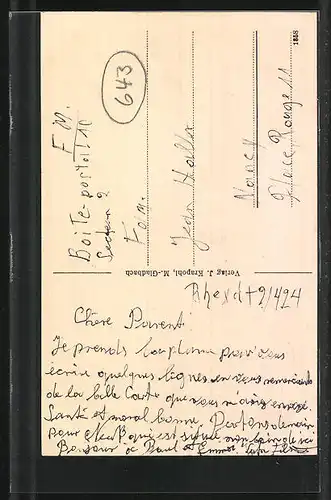 F M.
Boite postal 110
Secteur 2
643
Fam.
Jean Haller
Nancy
Place Rouge 11
1858
Verlag J. Krapohl, M.-Gladbach
Rheydt 9/4 24
Chère Parent
Je prends la plume pour vous
écrire quelques lignes en vous remerciant
de la belle Carte que vous m'avez envoyé.
Santé et moral bonne.
pour qui est situé non loin d'ici
Bonjour de Paul et